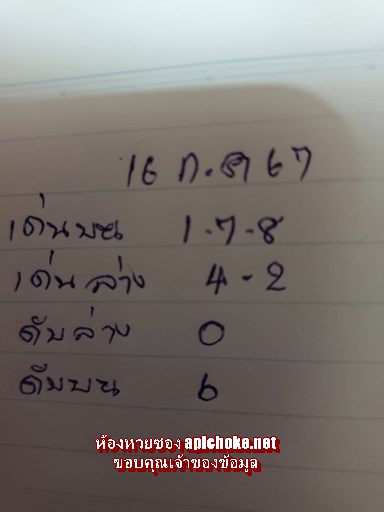 16 ก.ค 67
เด่นบน 1-7-8
เด่นล่าง 4-2
ดับล่าง 0
ดับบน 6
ห้องหวยซอง apichoke.net
ขอบคุณเจ้าของข้อมูล